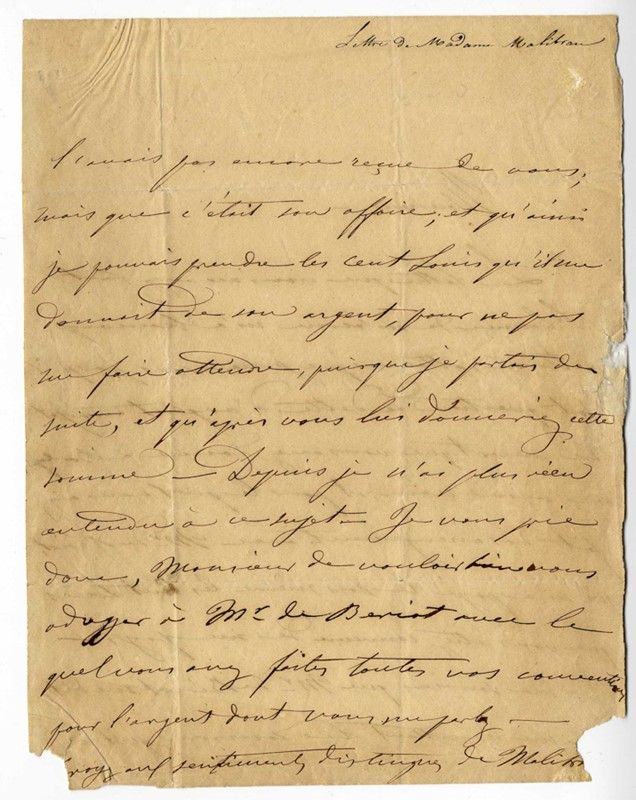 Lettre de Madame Malibran
l'avais pas encore reçue de vous,
mais que c'était son affaire, et qu'ainsi
je pouvais prendre les cent Louis qu'il me
donnait de son argent, pour ne pas
me faire attendre, puisque je partais de
suite, et qu'après vous lui donneriez cette
somme — Depuis je n'ai plus rien
entendu à ce sujet — Je vous prie
donc, Monsieur de vouloir bien vous
adresser à Mr. de Beriot avec le
quel vous avez faites toutes vos conventions
pour l'argent dont vous me parlez —
sentiments distingués de Malibr